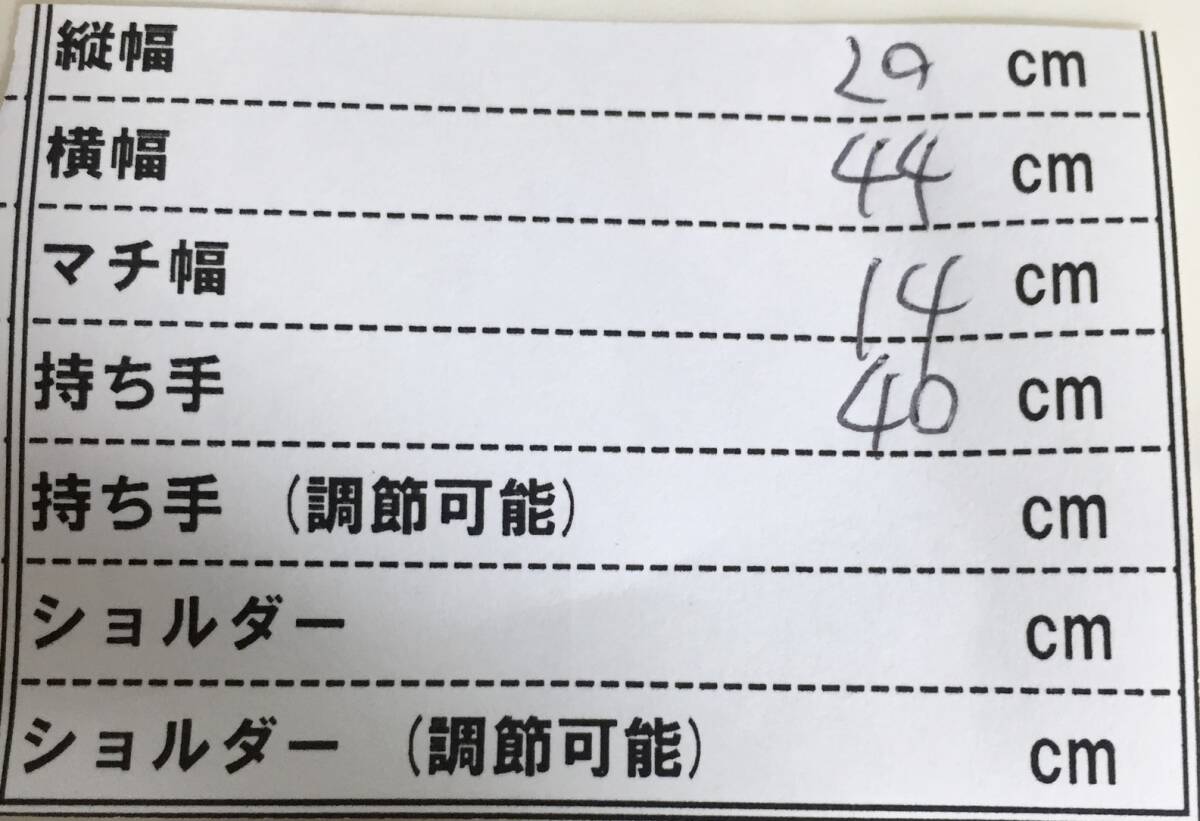 縦幅 29 cm
横幅 44 cm
マチ幅 14 cm
持ち手 40 cm
持ち手 (調節可能) cm
ショルダー cm
ショルダー (調節可能) cm